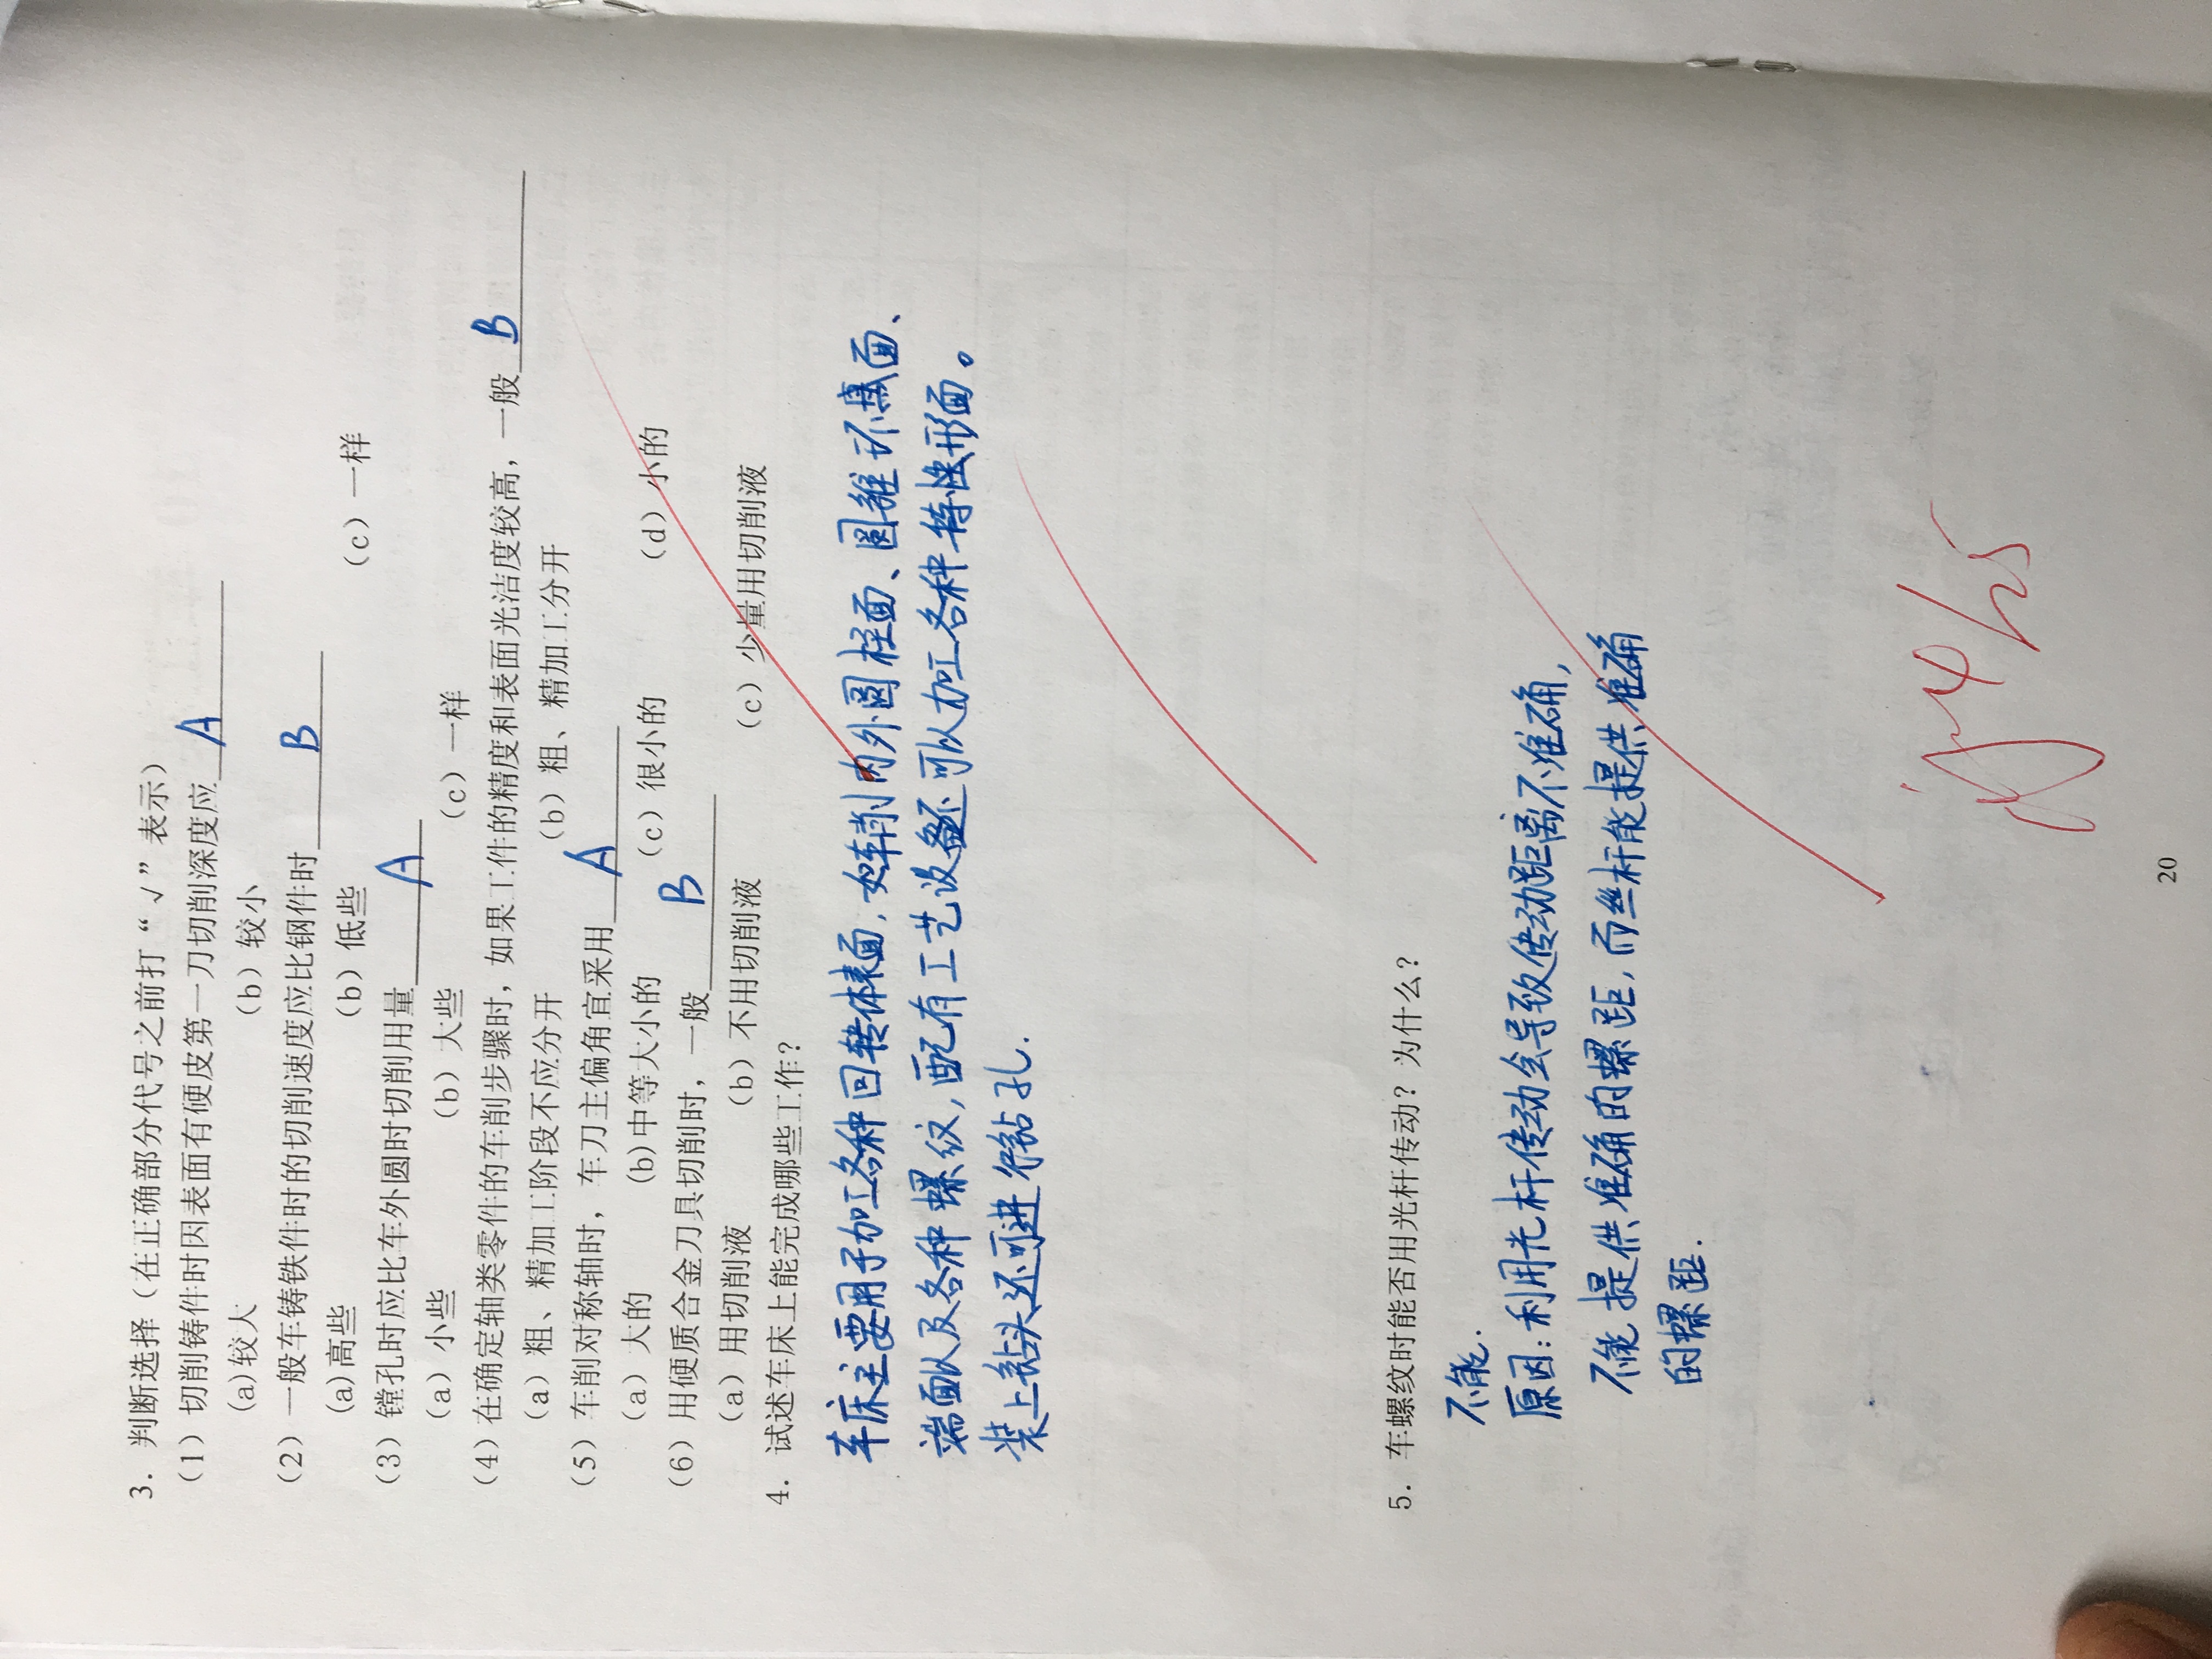 3. 判断选择（在正确部分代号之前打“√”表示）
（1）切削铸件时因表面有硬皮第一刀切削深度应 A
(a)较大 （b）较小
（2）一般车铸铁件时的切削速度应比钢件时 B
(a)高些 （b）低些 （c）一样
（3）镗孔时应比车外圆时切削用量 A
（a）小些 （b）大些 （c）一样
（4）在确定轴类零件的车削步骤时，如果工件的精度和表面光洁度较高，一般 B
（a）粗、精加工阶段不应分开 （b）粗、精加工分开
（5）车削对称轴时，车刀主偏角宜采用 A
（a）大的 (b)中等大小的 （c）很小的 （d）小的
（6）用硬质合金刀具切削时，一般 B
（a）用切削液 （b）不用切削液 （c）少量用切削液
4. 试述车床上能完成哪些工作？
车床主要用于加工各种回转体表面，如车削内外圆柱面、圆锥环面、
端面以及各种螺纹，配有工艺设备还可以加工各种特形面。
装上钻头还可进行钻孔.
5. 车螺纹时能否用光杆传动？为什么？
不能.
原因：利用光杆传动会导致传动距离不准确，
不能提供准确的螺距，而丝杆能提供准确
的螺距.
4/25
20